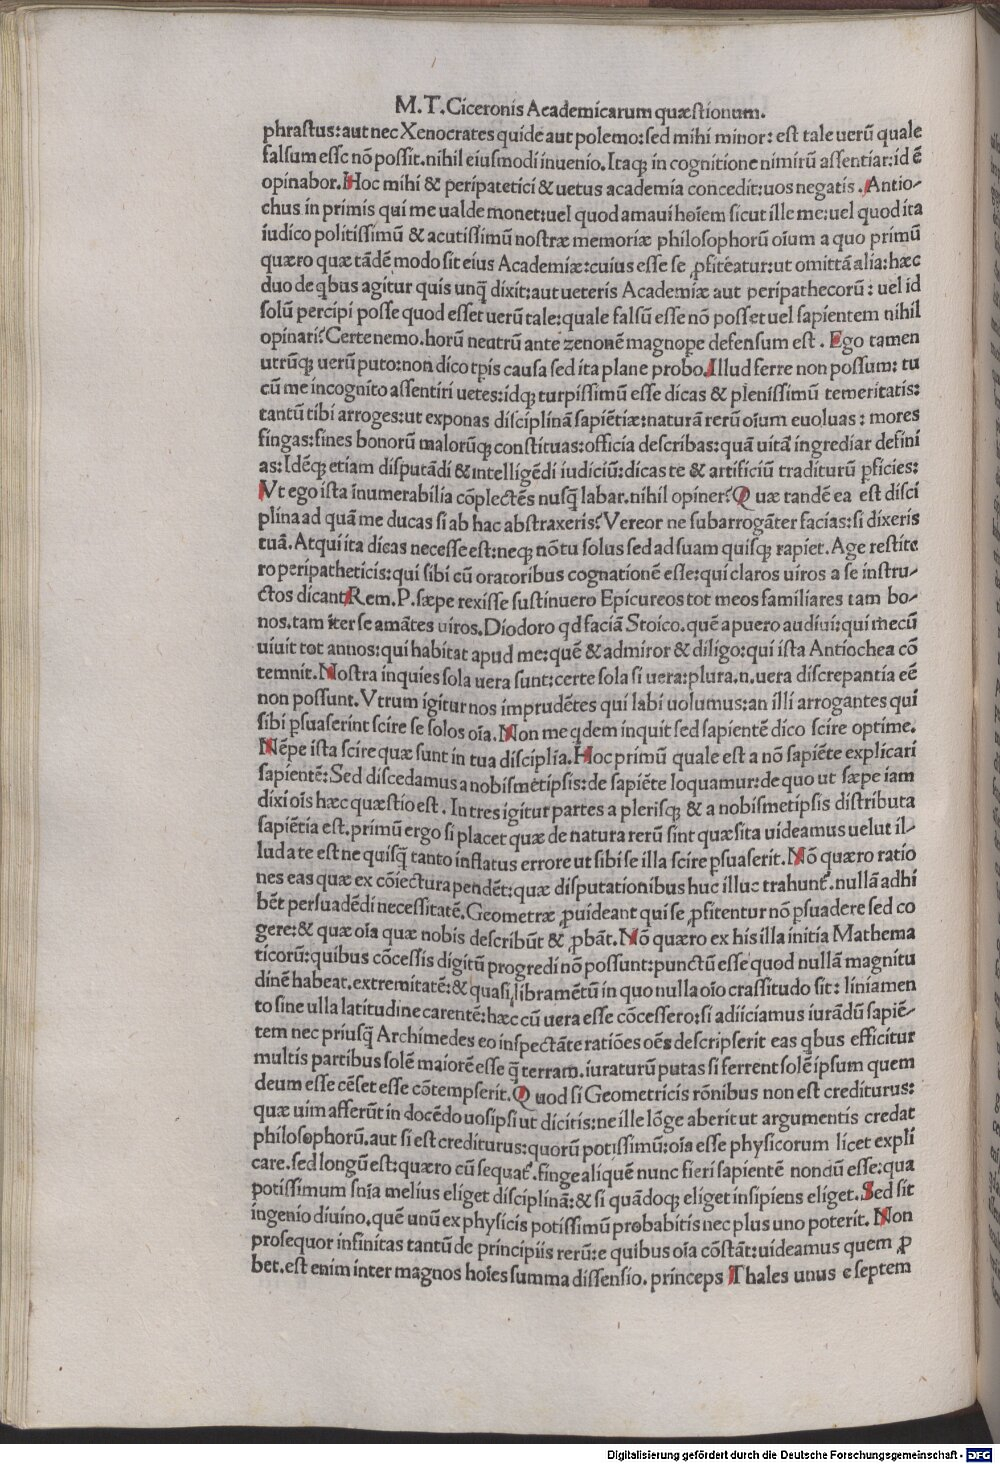 M.T.Ciceronis Academicarum quæstionum.
phrastus:aut nec Xenocrates quidē aut polemo:sed mihi minor: est tale uerū quale
falsum esse nō possit.nihil eiusmodi inuenio.Itaqꝫ in cognitione nimirū assentiar:id ē
opinabor.Hoc mihi & peripatetici & uetus academia concedit:uos negatis.Antio-
chus in primis qui me ualde monet:uel quod amaui hoīem sicut ille me:uel quod ita
iudico politissimū & acutissimū nostræ memoriæ philosophorū oīum a quo primū
quæro quæ tādē modo sit eius Academiæ:cuius esse se ꝓfiteatur:ut omittā alia:hæc
duo de qbus agitur quis unq̄ dixit:aut ueteris Academiæ aut peripathecorū: uel id
solū percipi posse quod esset uerū tale:quale falsū esse nō posset uel sapientem nihil
opinari?Certe nemo.horū neutrū ante zenonē magnope defensum est. Ego tamen
utrūqꝫ uerū puto:non dico tpis causa sed ita plane probo.Illud ferre non possum: tu
cū me incognito assentiri uetes:idqꝫ turpissimū esse dicas & plenissimū temeritatis:
tantū tibi arroges:ut exponas disciplinā sapiētiæ:naturā rerū oīum euoluas: mores
fingas:fines bonorū malorūqꝫ constituas:officia describas:quā uitā ingrediar defini
as:Idēqꝫ etiam disputādi & intelligēdi iudiciū:dicas te & artificiū traditurū pficies:
Vt ego ista inumerabilia cōplectēs nusq̄ labar.nihil opiner?Quæ tandē ea est disci
plina ad quā me ducas si ab hac abstraxeris?Vereor ne subarrogāter facias:si dixeris
tuā.Atqui ita dicas necesse est:neqꝫ nō tu solus sed ad suam quisqꝫ rapiet.Age restite
ro peripatheticis:qui sibi cū oratoribus cognationē esse:qui claros uiros a se instru-
ctos dicant Rem.P.sæpe rexisse sustinuero Epicureos tot meos familiares tam bo-
nos.tam īter se amātes uiros.Diodoro qd faciā Stoico.quē a puero audiui:qui mecū
uiuit tot annos:qui habitat apud me:quē & admiror & diligo:qui ista Antiochea cō
temnit.Nostra inquies sola uera sunt:certe sola si uera:plura.n.uera discrepantia eē
non possunt.Vtrum igitur nos imprudētes qui labi uolumus:an illi arrogantes qui
sibi psuaserint scire se solos oīa.Non me qdem inquit sed sapientē dico scire optime.
Nēpe ista scire quæ sunt in tua disciplīa.Hoc primū quale est a nō sapiēte explicari
sapientē:Sed discedamus a nobismetipsis:de sapiēte loquamur:de quo ut sæpe iam
dixi oīs hæc quæstio est. In tres igitur partes a plerisqꝫ & a nobismetipsis distributa
sapiētia est.primū ergo si placet quæ de natura rerū sint quæsita uideamus uelut il-
lud a te est ne quisq̄ tanto inflatus errore ut sibi se illa scire psuaserit.Nō quæro ratio
nes eas quæ ex cōiectura pendēt:quæ disputationibus huc illuc trahunt᷑.nullā adhi
bēt persuadēdi necessitatē.Geometræ ꝓuideant qui se ꝓfitentur nō psuadere sed co
gere:& quæ oīa quæ nobis describūt & ꝓbāt.Nō quæro ex his illa initia Mathema
ticorū:quibus cōcessis digitū progredi nō possunt:punctū esse quod nullā magnitu
dinē habeat.extremitatē:& quasi libramētū in quo nulla oīo crassitudo sit: liniamen
to sine ulla latitudine carentē:hæc cū uera esse cōcessero:si adiiciamus iurādū sapiē-
tem nec priusq̄ Archimedes eo inspectāte ratiōes oēs descripserit eas qbus efficitur
multis partibus solē maiorē esse q̄ terram.iuraturū putas si ferrent solē ipsum quem
deum esse cēset esse cōtempserit.Quod si Geometricis rōnibus non est crediturus:
quæ uim afferūt in docēdo uos ipsi ut dicitis:ne ille lōge aberit ut argumentis credat
philosophorū.aut si est crediturus:quorū potissimū:oīa esse physicorum licet expli
care.sed longū est:quæro cū sequat᷑.finge aliquē nunc fieri sapientē nondū esse:qua
potissimum snīa melius eliget disciplinā:& si quādoqꝫ eliget insipiens eliget.Sed sit
ingenio diuino.quē unū ex physicis potissimū probabitis nec plus uno poterit. Non
prosequor infinitas tantū de principiis rerū:e quibus oīa cōstāt:uideamus quem ꝓ
bet.est enim inter magnos hoīes summa dissensio.princeps Thales unus e septem
Digitalisierung gefördert durch die Deutsche Forschungsgemeinschaft - DFG